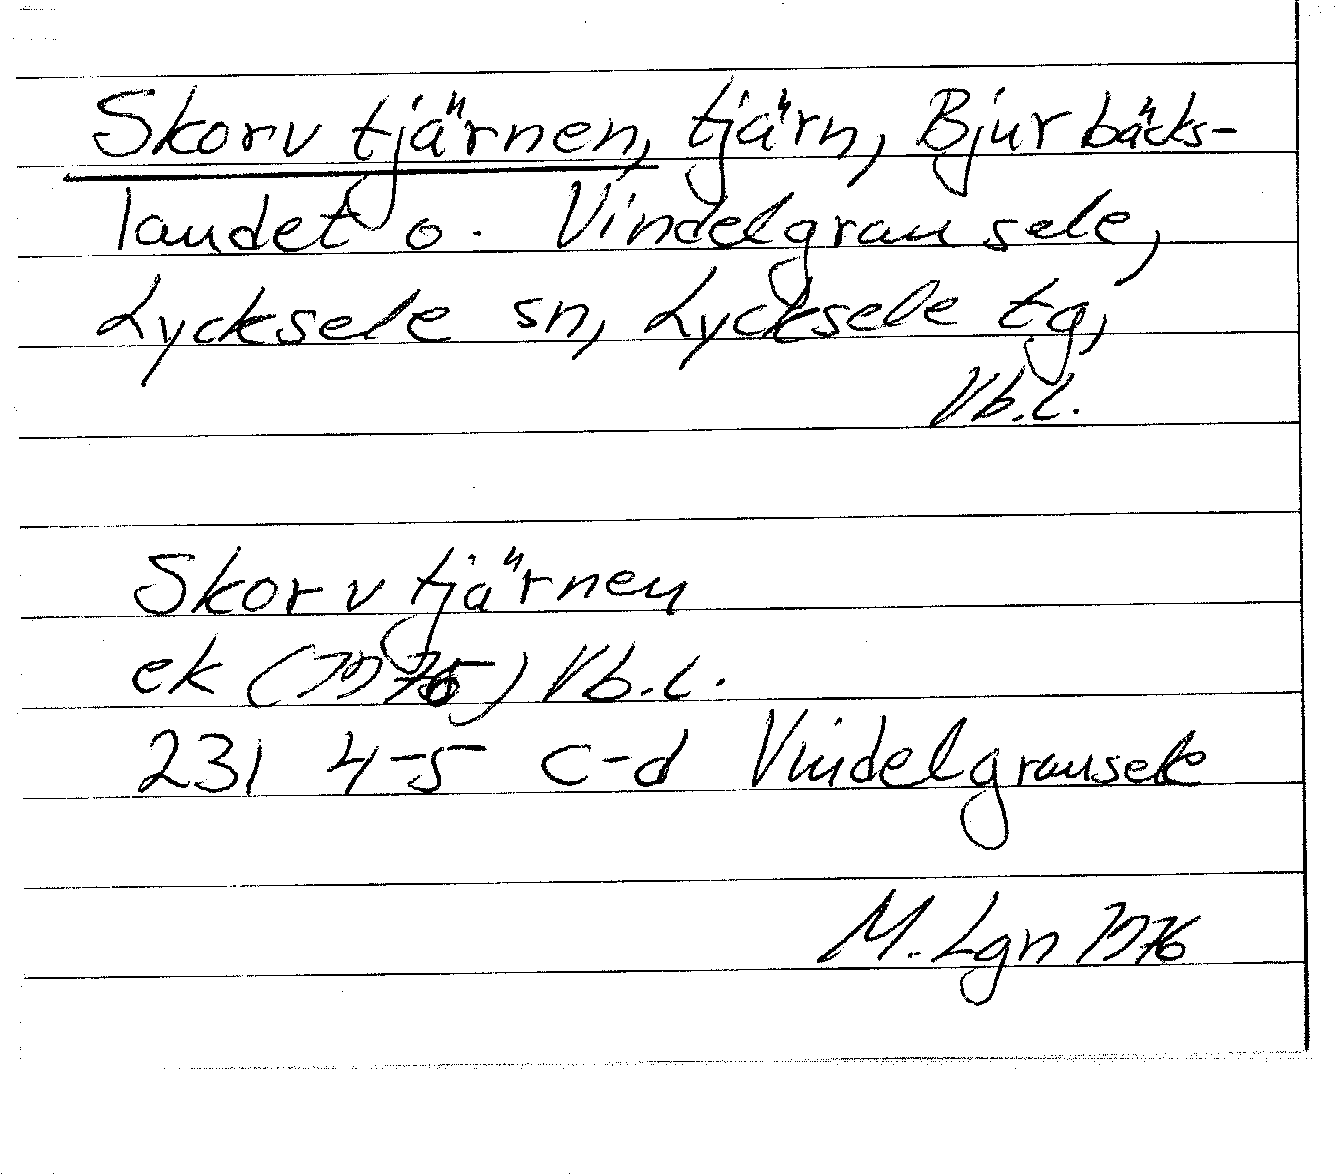 Skorvtjärnen, tjärn, Bjurbäcks-
landet o. Vindelgransele,
Lycksele sn, Lycksele tg,
Vb.l.
Skorvtjärnen
ek (1976) Vb.l.
231 4-5 c-d Vindelgransele
M. Lgn 1976